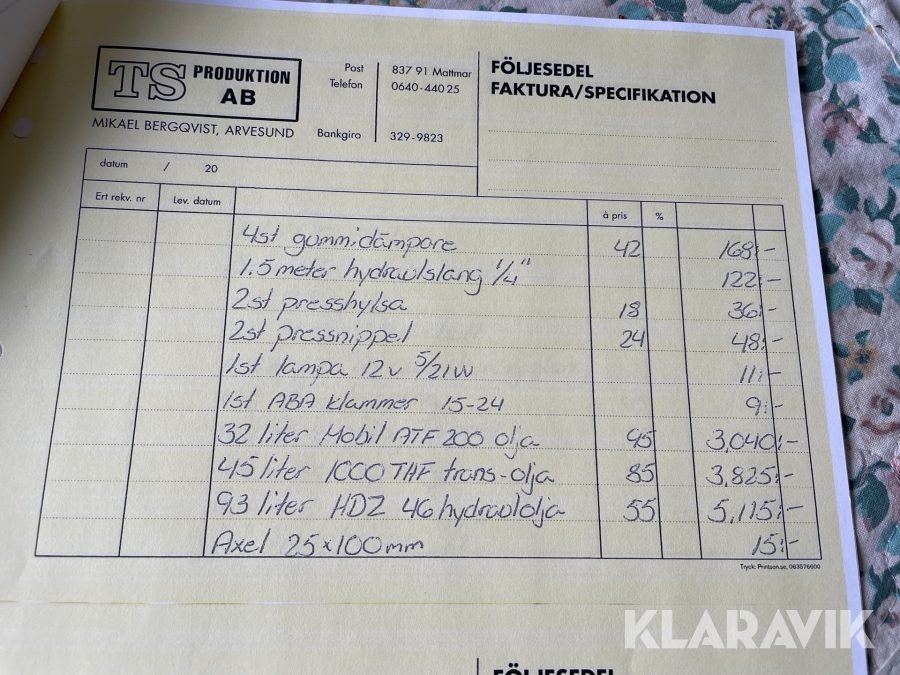 TS PRODUKTION AB
MIKAEL BERGQVIST, ARVESUND
Post 837 91 Mattmar
Telefon 0640-440 25
Bankgiro 329-9823
FÖLJESEDEL
FAKTURA/SPECIFIKATION
datum / 20
Ert rekv. nr Lev. datum à pris %
4st gummidämpare 42 168:-
1.5 meter hydraulslang 1/4" 122:-
2st presshylsa 18 36:-
2st pressnippel 24 48:-
1st lampa 12v 5/21W 11:-
1st ABA klammer 15-24 9:-
32 liter Mobil ATF 200 olja 95 3,040:-
45 liter 1000 THF trans-olja 85 3,825:-
93 liter HDZ 46 hydraulolja 55 5,115:-
Axel 25x100mm 15:-
Tryck: Printson.se, 063576600
KLARAVIK
FÖLJESEDEL